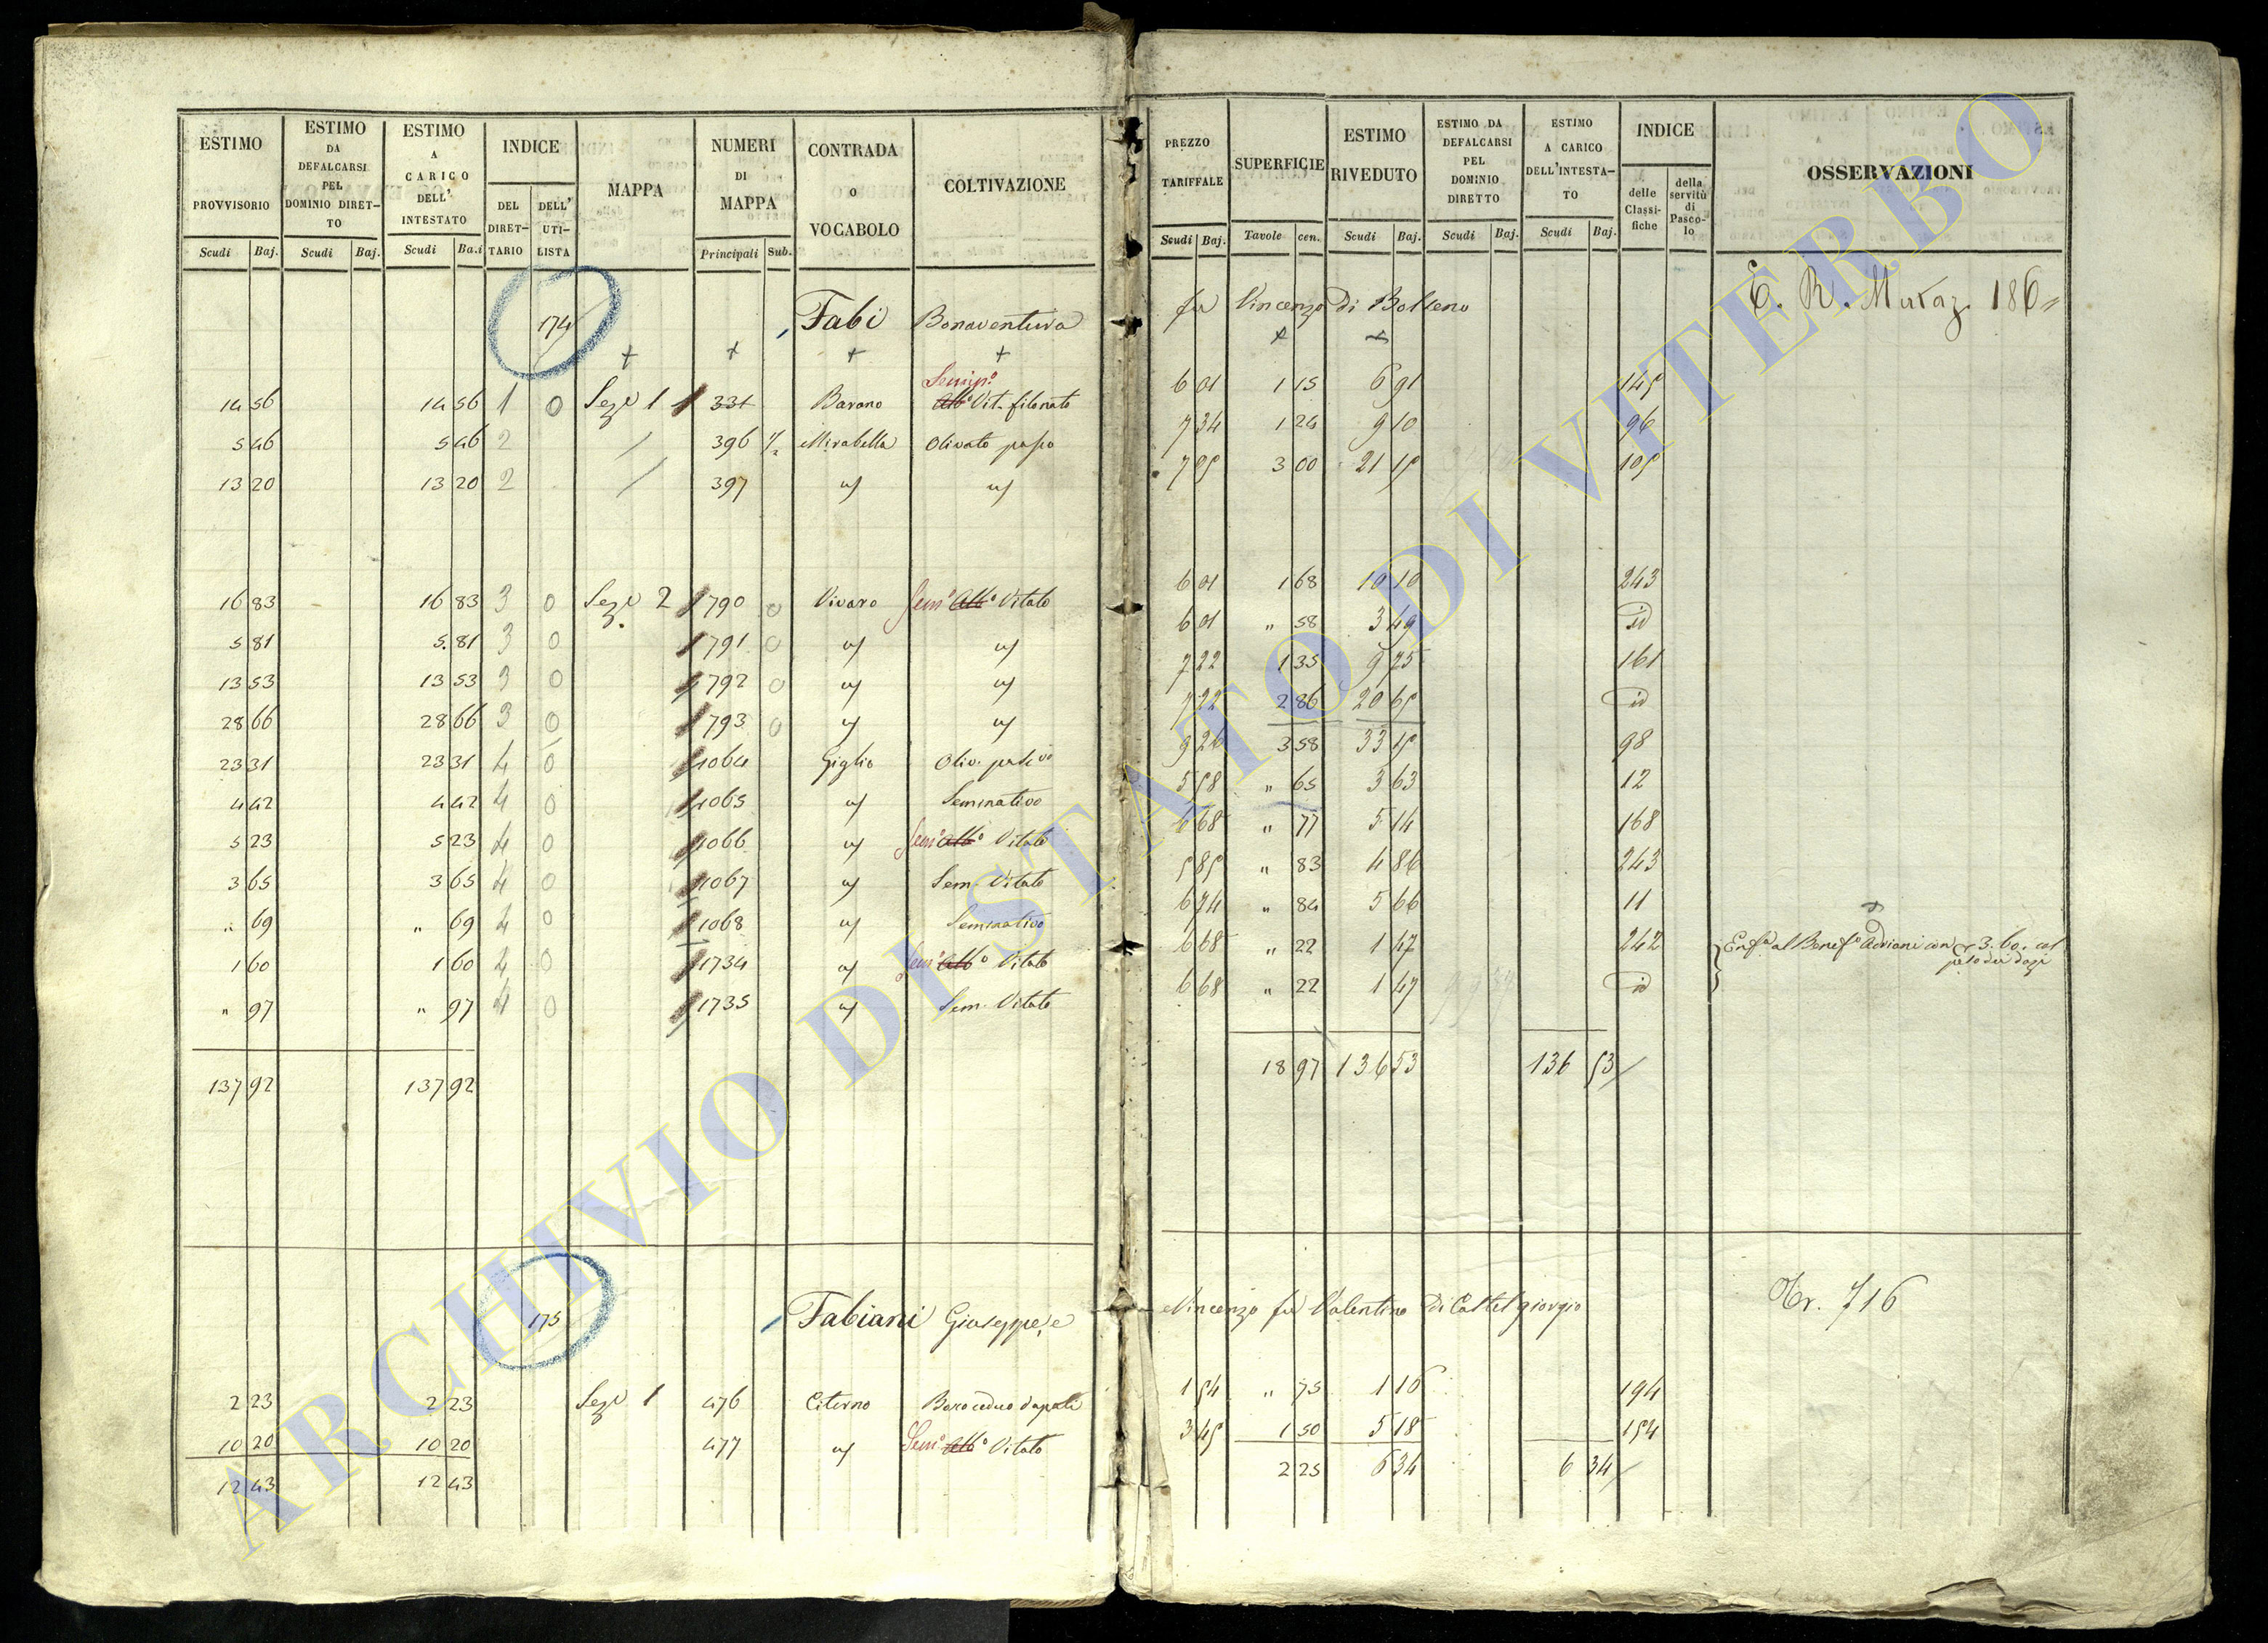 ESTIMO PROVVISORIO | ESTIMO DA DEFALCARSI PEL DOMINIO DIRETTO | ESTIMO A CARICO DELL' INTESTATO | INDICE | MAPPA | NUMERI DI MAPPA | CONTRADA O VOCABOLO | COLTIVAZIONE | PREZZO TARIFFALE | SUPERFICIE | ESTIMO RIVEDUTO | ESTIMO DA DEFALCARSI PEL DOMINIO DIRETTO | ESTIMO A CARICO DELL'INTESTATO | INDICE | OSSERVAZIONI
DEL DIRETTARIO | DELL' UTILISTA | delle Classifiche | della servitù di Pascolo
Scudi | Baj. | Scudi | Baj. | Scudi | Ba.i | Principali | Sub. | Scudi | Baj. | Tavole | cen. | Scudi | Baj. | Scudi | Baj. | Scudi | Baj.
174 Fabi Bonaventura fu Vincenzo Di Bolseno E. R. Mutaz. 186
+ + + + + +
Semin.o
14 56 | 14 56 | 1 | 0 | Sez.e 1 | 331 | Barano | Alb.o Vit. filonato | 6 01 | 1 15 | 6 91 | 145
5 46 | 5 46 | 2 | / | 396 ½ | Mirabella | Olivato passo | 7 34 | 1 24 | 9 10 | 96
13 20 | 13 20 | 2 | / | 397 | a/ | a/ | 7 05 | 3 00 | 21 15 | 105
16 83 | 16 83 | 3 | 0 | Sez.e 2 | 790 | 0 | Vivaro | Sem.o Alb.o Vitato | 6 01 | 1 68 | 10 10 | 243
5 81 | 5. 81 | 3 | 0 | 791 | 0 | a/ | a/ | 6 01 | " 58 | 3 49 | id
13 53 | 13 53 | 3 | 0 | 792 | 0 | a/ | a/ | 7 22 | 1 35 | 9 75 | 161
28 66 | 28 66 | 3 | 0 | 793 | 0 | a/ | a/ | 7 22 | 2 86 | 20 65 | id
23 31 | 23 31 | 4 | 0 | 1064 | Giglio | Oliv. passivo | 9 26 | 3 58 | 33 15 | 98
4 42 | 4 42 | 4 | 0 | 1065 | a/ | Seminativo | 5 58 | " 65 | 3 63 | 12
5 23 | 5 23 | 4 | 0 | 1066 | a/ | Sem.o Alb.o Vitato | 6 68 | " 77 | 5 14 | 168
3 65 | 3 65 | 4 | 0 | 1067 | a/ | Sem. Vitato | 5 85 | " 83 | 4 86 | 243
" 69 | " 69 | 4 | 0 | 1068 | a/ | Seminativo | 6 74 | " 84 | 5 66 | 11
1 60 | 1 60 | 4 | 0 | 1734 | a/ | Sem.o Alb.o Vitato | 6 68 | " 22 | 1 47 | 242 | Enf.a al Benef.o Adriani con 3. 60. col peso dei dazi
" 97 | " 97 | 4 | 0 | 1735 | a/ | Sem. Vitato | 6 68 | " 22 | 1 47 | id
137 92 | 137 92 | 18 97 | 136 53 | 136 53
175 Fabiani Giuseppe, e Vincenzo fu Valentino Di Castel giorgio 716
2 23 | 2 23 | Sez.e 1 | 476 | Citerno | Bosco ceduo dapali | 1 54 | " 75 | 1 16 | 194
10 20 | 10 20 | 477 | a/ | Sem.o Alb.o Vitato | 3 45 | 1 50 | 5 18 | 154
12 43 | 12 43 | 2 25 | 6 34 | 6 34
ARCHIVIO DI STATO DI VITERBO